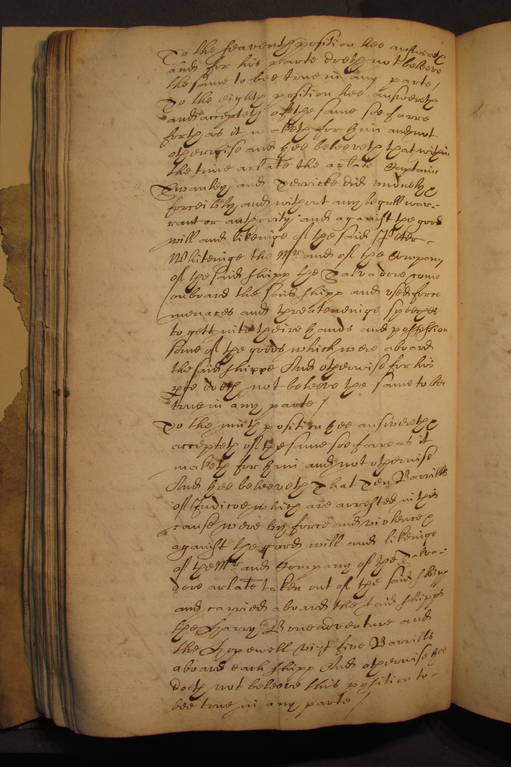 To the seaventh position hee answereth
and for his parte doeth not beleeve
the same to bee true in any parte /
To the eighth position hee answereth
and accepteth of the same soe farre
forth as it maketh for him and not
otherwise and hee beleeveth that within
the time arlate the arlate Captaine
Swanley and Derricke did unduely
forceibly and without any legall war-
rant or authority and against the good
will and likeinge of the said Peter
Whiteinge the Mr and of the Company
of the said shipp the Salvadore come
onboard the said shipp and used force
menaces and threateneinge speeches
to gett into theire hands and possession
some of the goods which were aboard
the said shippe And otherwise for his
parte doeth not beleeve the same to bee
true in any parte /
To the ninth position hee answereth
accepteth of the same soe farre as it
maketh for him and not otherwise
And hee beleeveth That Ten Barrills
of Indicoe which are arrested in this
cause were by force and violence
against the good will and likeinge
of the Mr and Company of the Salva-
dore arlate taken out of the said shipp
and carried aboard the said shipps
the Harry Bonadventure and
the Hopewell viz five Barrills
aboard each shipp And otherwise hee
doeth not beleeve this position to
bee true in any parte /